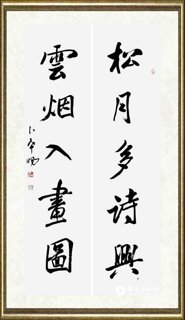 松月多诗興
雲烟入畫圖